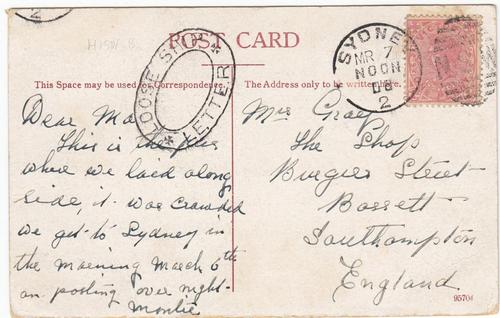 2
H15N.B
POST CARD
LOOSE SHIP
LETTER
SYDNEY
MR 7
NOON
08
2
This Space may be used for Correspondence.
The Address only to be written here.
Dear Ma
This is the
where we laid along
side, it was crowded
we get to Sydney in
the morning March 6th
am posting over night-
Montie
Mrs
The Shop
Burgess Street
Bassett
Southampton
England
95704